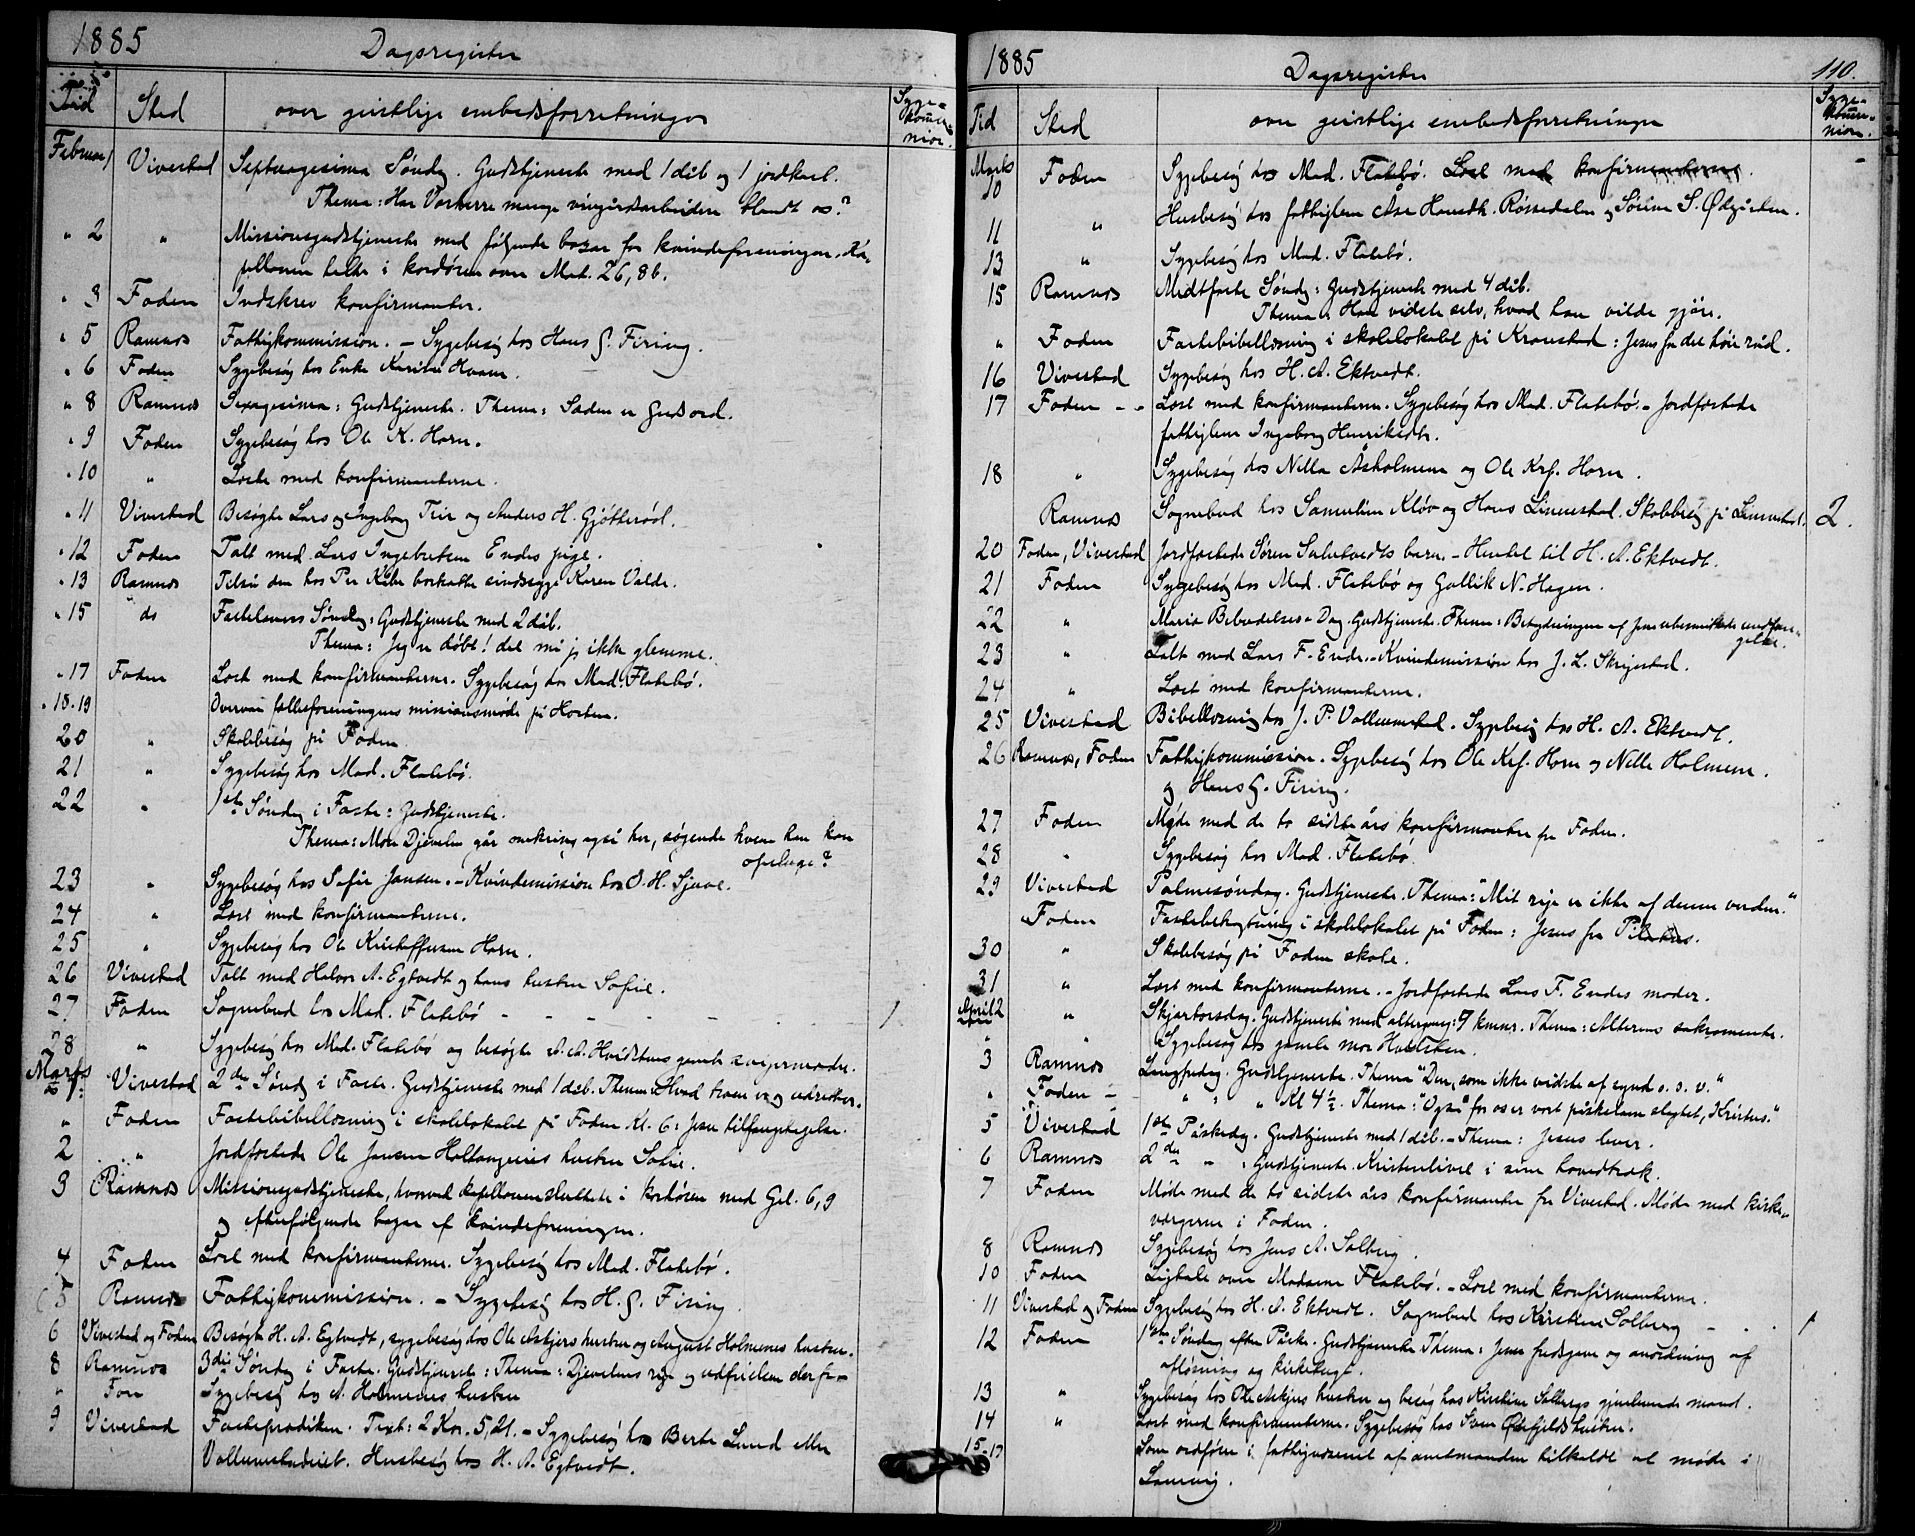 1885 Dagsregister
Tid Sted over geistlige embedsforretninger Syge-
kommu-
nion.
Februar 1 Vivestad Septuagesima Søndag. Gudstjeneste med 1 dåb og 1 jordkast.
Thema: Har Vorherre mange vingårdsarbeidere blandt os?
" 2 " Missionsgudstjeneste med følgende bazar for kvindeforeningen. Ka-
pellanen talte i kordøren over Mat. 26, 86.
" 3 Foden Indskrev konfirmanter.
" 5 Ramnes Fattigkommission. – Sygebesøg hos Hans G. Firing.
" 6 Foden Sygebesøg hos Enke Karine Hvam.
" 8 Ramnes Sexagesima: Gudstjeneste. Thema: Sæden er Guds ord.
" 9 Foden Sygebesøg hos Ole K. Horn.
" 10 " Læste med konfirmanterne.
" 11 Vivestad Besøgte Lars og Ingeborg Teir og Anders H. Gjøtterød.
" 12 Foden Talt med Lars Ingebretsen Endes pige.
" 13 Ramnes Tilså den hos Per Kjær bortsatte sindssyge Karen Valde.
" 15 do Fastelavens Søndag: Gudstjeneste med 2 dåb.
Thema: Jeg er døbt! det må jeg ikke glemme.
" 17 Foden Læst med konfirmanterne. Sygebesøg hos Mad. Flatebø.
" 18-19 Overvar fællesforeningens missionsmøde på Horten.
20 " Skolebesøg på Foden.
21 " Sygebesøg hos Mad. Flatebø.
22 " 1ste Søndag i Faste: Gudstjeneste.
Thema: Mon Djævelen går omkring også her, søgende hvem han kan
opsluge?
23 " Sygebesøg hos Sofie Jansen. – Kvindemission hos O. H. Sjuve.
24 " Læst med konfirmanterne.
25 " Sygebesøg hos Ole Kristoffersen Horn.
26 Vivestad Talt med Halvor A. Egtvedt og hans hustru Sofie.
27 Foden Sognebud hos Mad. Flatebø – – – – – 1
28 " Sygebesøg hos Mad. Flatebø og besøgte A. A. Hvidstens gamle svigermoder.
Marts
1. Vivestad 2den Søndag i Faste. Gudstjeneste med 1 dåb. Thema: Hvad troen er og udretter.
" Foden Fastebibellæsning i skolelokalet på Foden Kl. 6: Jesu tilfangetagelse.
2 " Jordfæstede Ole Jansen Holtungeies hustru Sofie.
3 Ramnes Missionsgudstjeneste, hvorved kapellanen sluttede i kordøren med Gal. 6, 9
og efterfølgende bazar af kvindeforeningen.
4 Foden Læst med konfirmanterne. Sygebesøg hos Mad. Flatebø.
5 Ramnes Fattigkommission. – Sygebesøg hos H. G. Firing.
6 Vivestad og Foden Besøgte H. A. Egtvedt, sygebesøg hos Ole Askjers hustru og August Holmenes hustru.
8 Ramnes 3die Søndag i Faste. Gudstjeneste: Thema: Djævelens rige og udfrielsen derfra
" Fon Sygebesøg hos A. Holmenes hustru
9 Vivestad Fasteprædiken. Text: 2 Kor. 5, 21. – Sygebesøg hos Berte Lund eller
Vollumstadeiet. Husbesøg hos H. A. Egtvedt.
1885 Dagsregister 110.
Tid Sted over geistlige embedsforretninger Syge-
kommu-
nion.
Marts
10 Foden Sygebesøg hos Mad. Flatebø. Læst med konfirmanterne.
11 " Husbesøg hos fattiglem Åse Hansdtr. Røssedalen og Sørine S. Ødegården.
13 " Sygebesøg hos Mad. Flatebø.
15 Ramnes Midtfaste Søndag: Gudstjeneste med 4 dåb.
Thema: Han vidste selv, hvad han vilde gjøre.
" Foden Fastebibellæsning i skolelokalet på Kronestad: Jesus for det høie råd.
16 Vivestad Sygebesøg hos H. A. Ektvedt.
17 Foden – – Læst med konfirmanterne. Sygebesøg hos Mad. Flatebø. – Jordfæstede
fattiglem Ingeborg Henriksdtr.
18 " Sygebesøg hos Nella Åsholmene og Ole Krf. Horn.
Ramnes Sognebud hos Samueline Kløv og Hans Linnestad. Skolebesøg på Linnestad. 2.
20 Foden, Vivestad Jordfæstede Søren Sulutvedts barn. – Hentet til H. A. Ektvedt.
21 Foden Sygebesøg hos Mad. Flatebø og Gullik N. Hagen.
22 " Maria Bebudelses-Dag. Gudstjeneste. Thema: Betydningen af Jesu ubesmittede undfan-
gelse.
23 " Talt med Lars F. Ende. – Kvindemission hos J. L. Skrijestad.
24 " Læst med konfirmanterne.
25 Vivestad Bibellæsning hos J. P. Vollumstad. Sygebesøg hos H. A. Ektvedt.
26 Ramnes, Foden Fattigkommission. Sygebesøg hos Ole Krf. Horn og Nelle Holmene.
og Hans G. Firing.
27 Foden Møde med de to sidste års konfirmanter fra Foden.
28 " Sygebesøg hos Mad. Flatebø.
29 Vivestad Palmesøndag. Gudstjeneste. Thema: "Mit rige er ikke af denne verden."
" Foden Fastebetragtning i skolelokalet på Foden: Jesus for Pilatus.
30 " Skolebesøg på Foden skole.
31 " Læst med konfirmanterne. – Jordfæstede Lars F. Endes moder.
April 2 " Skjærtorsdag. Gudstjeneste med altergang: 9 kmnr. Thema: Alterens sakramente.
" " Sygebesøg hos gamle mor Hvidsten.
3 Ramnes Langfredag. Gudstjeneste. Thema "Den, som ikke vidste af synd o. s. v."
" Foden – " " " Kl 4½. Thema: "Også for os er vort påskelam slagtet, Kristus."
5 Vivestad 1ste Påskedag. Gudstjeneste med 1 dåb. – Thema: Jesus lever.
6 Ramnes 2den " . Gudstjeneste. Kristenlivet i sine hovedtræk.
7 Foden Møde med de to sidste års konfirmanter fra Vivestad. Møde med kirke-
værgerne i Foden.
8 Ramnes Sygebesøg hos Jens A. Solberg.
10 Foden Ligtale over Madame Flatebø. – Læst med konfirmanterne.
11 Vivestad og Foden Sygebesøg hos H. A. Ektvedt. Sognebud hos Kristine Solberg – – 1
12 Foden 1ste Søndag efter Påske. Gudstjeneste Thema: Jesu fredsgave og anordning af
afløsning og kirketugt.
13 " Sygebesøg hos Ole Askjers hustru og besøg hos Kristine Solbergs gjenlevende mand.
14 " Læst med konfirmanterne. Sygebesøg hos Sven Østfjelds hustru.
15-17 Som ordfører i fattigvæsenet af amtmanden tilkaldt at møde i
Laurvig.